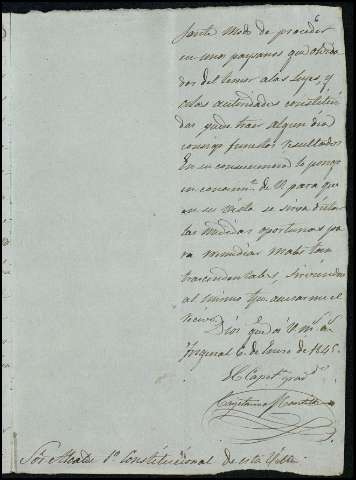 sante Modo de proceder
en unos paysanos que olvida
dos del temor a las Leyes, y
a las autoridades constitui
das puede traer algun dia
consigo funestos resultados
En su consecuencia lo pongo
en conocim.to de V. para que
en su Vista se sirva dictar
las medidas oportunas pa
ra remediar males tan
trascendentales, sirviendo
al mismo tpo. avisarme el
recivo.
Dios gue. a V. m.s a.s
6 de Enero de 1845.
El Capn. grad.do
Cayetano
Sor. Alcalde 1o. Constitucional de esta Villa.